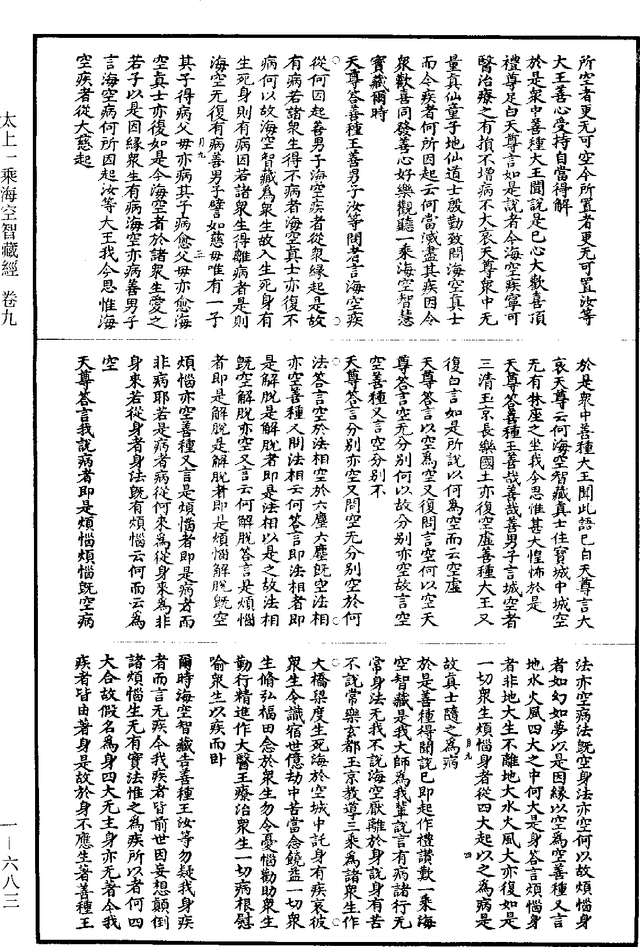 所空者更无可空今所置者更无可置汝等
大王善心受持自當得解
於是衆中善種大王聞說是已心大歡喜頂
禮尊足白天尊言如是說者今海空疾寧可
醫治療之有損不增病不大哀天尊衆中无
量真仙童子地仙道士殷勤致問海空真士
而今疾者何所因起云何當滅盡其疾因令
衆歡喜同發善心好樂觀聽一乘海空智慧
寶藏爾時
天尊答善種王善男子汝等問者言海空疾
從何因起善男子海空疾者從衆緣起是故
有病若諸衆生得不病者海空真士亦復不
病何以故海空智藏爲衆生故入生死身有
生死身則有病因若諸衆生得離病者是則
海空无復有病善男子譬如慈母唯有一子
其子得病父母亦病其子病愈父母亦愈海
空真士亦復如是今海空者於諸衆生愛之
若子以是因緣衆生有病海空亦病善男子
言海空病何所因起汝等大王我今思惟海
空疾者從大慈起
於是衆中善種大王聞此語已白天尊言大
哀天尊云何海空智藏真士住寶城中城空
无有牀座之坐我今思惟甚大惶怖於是
天尊答善種王善哉善哉善男子言城空者
三清玉京長樂國土亦復空虛善種大王又
復白言如是所說以何爲空而云空虛
天尊答言以空爲空又復問言空何以空天
尊答言空无分別何以故分別亦空故言空
空善種又言空分別不
天尊答言分別亦空又問空无分別空於何
法答言空於法相空於六塵六塵既空法相
亦空善種又問法相云何答言即法相者即
是解脫是解脫者即是法相以是之故法相
既空解脫亦空又言云何解脫答言是煩惱
者即是解脫是解脫者即是煩惱解脫既空
煩惱亦空善種又言是煩惱者即是病者而
非病耶若是病者病從何來爲從身來爲非
身來若從身者身法既有煩惱云何而云爲
空
天尊答言我說病者即是煩惱煩惱既空病
法亦空病法既空身法亦空何以故煩惱身
者如幻如夢以是因緣以空爲空善種又言
地水火風四大之中何大是身答言煩惱身
者非地大生不離地大水火風大亦復如是
一切衆生煩惱身者從四大起以之爲病是
故真士隨之爲病
於是善種得聞說已即起作禮讚歎一乘海
空智藏是我大師爲我輩說言有病諸行无
常身法无我不說海空厭離於身說身有苦
不說常樂玄都玉京教導三乘爲諸衆生作
大橋梁度生死海於空城中託身有疾哀彼
衆生令識宿世億劫中苦當念饒益一切衆
生脩弘福田念於衆生勿令憂惱勸助衆生
勤行精進作大醫王療治衆生一切病根慰
喻衆生以疾而卧
爾時海空智藏告善種王汝等勿疑我身疾
者而言无疾今我疾者皆前世因妄想顛倒
諸煩惱生无有實法惟之爲疾所以者何四
大合故假名爲身四大无主身亦无者令我
疾者皆由著身是故於身不應生著善種王
太上一乘海空智藏經 卷九
一—六八三
月九 三
月九 四